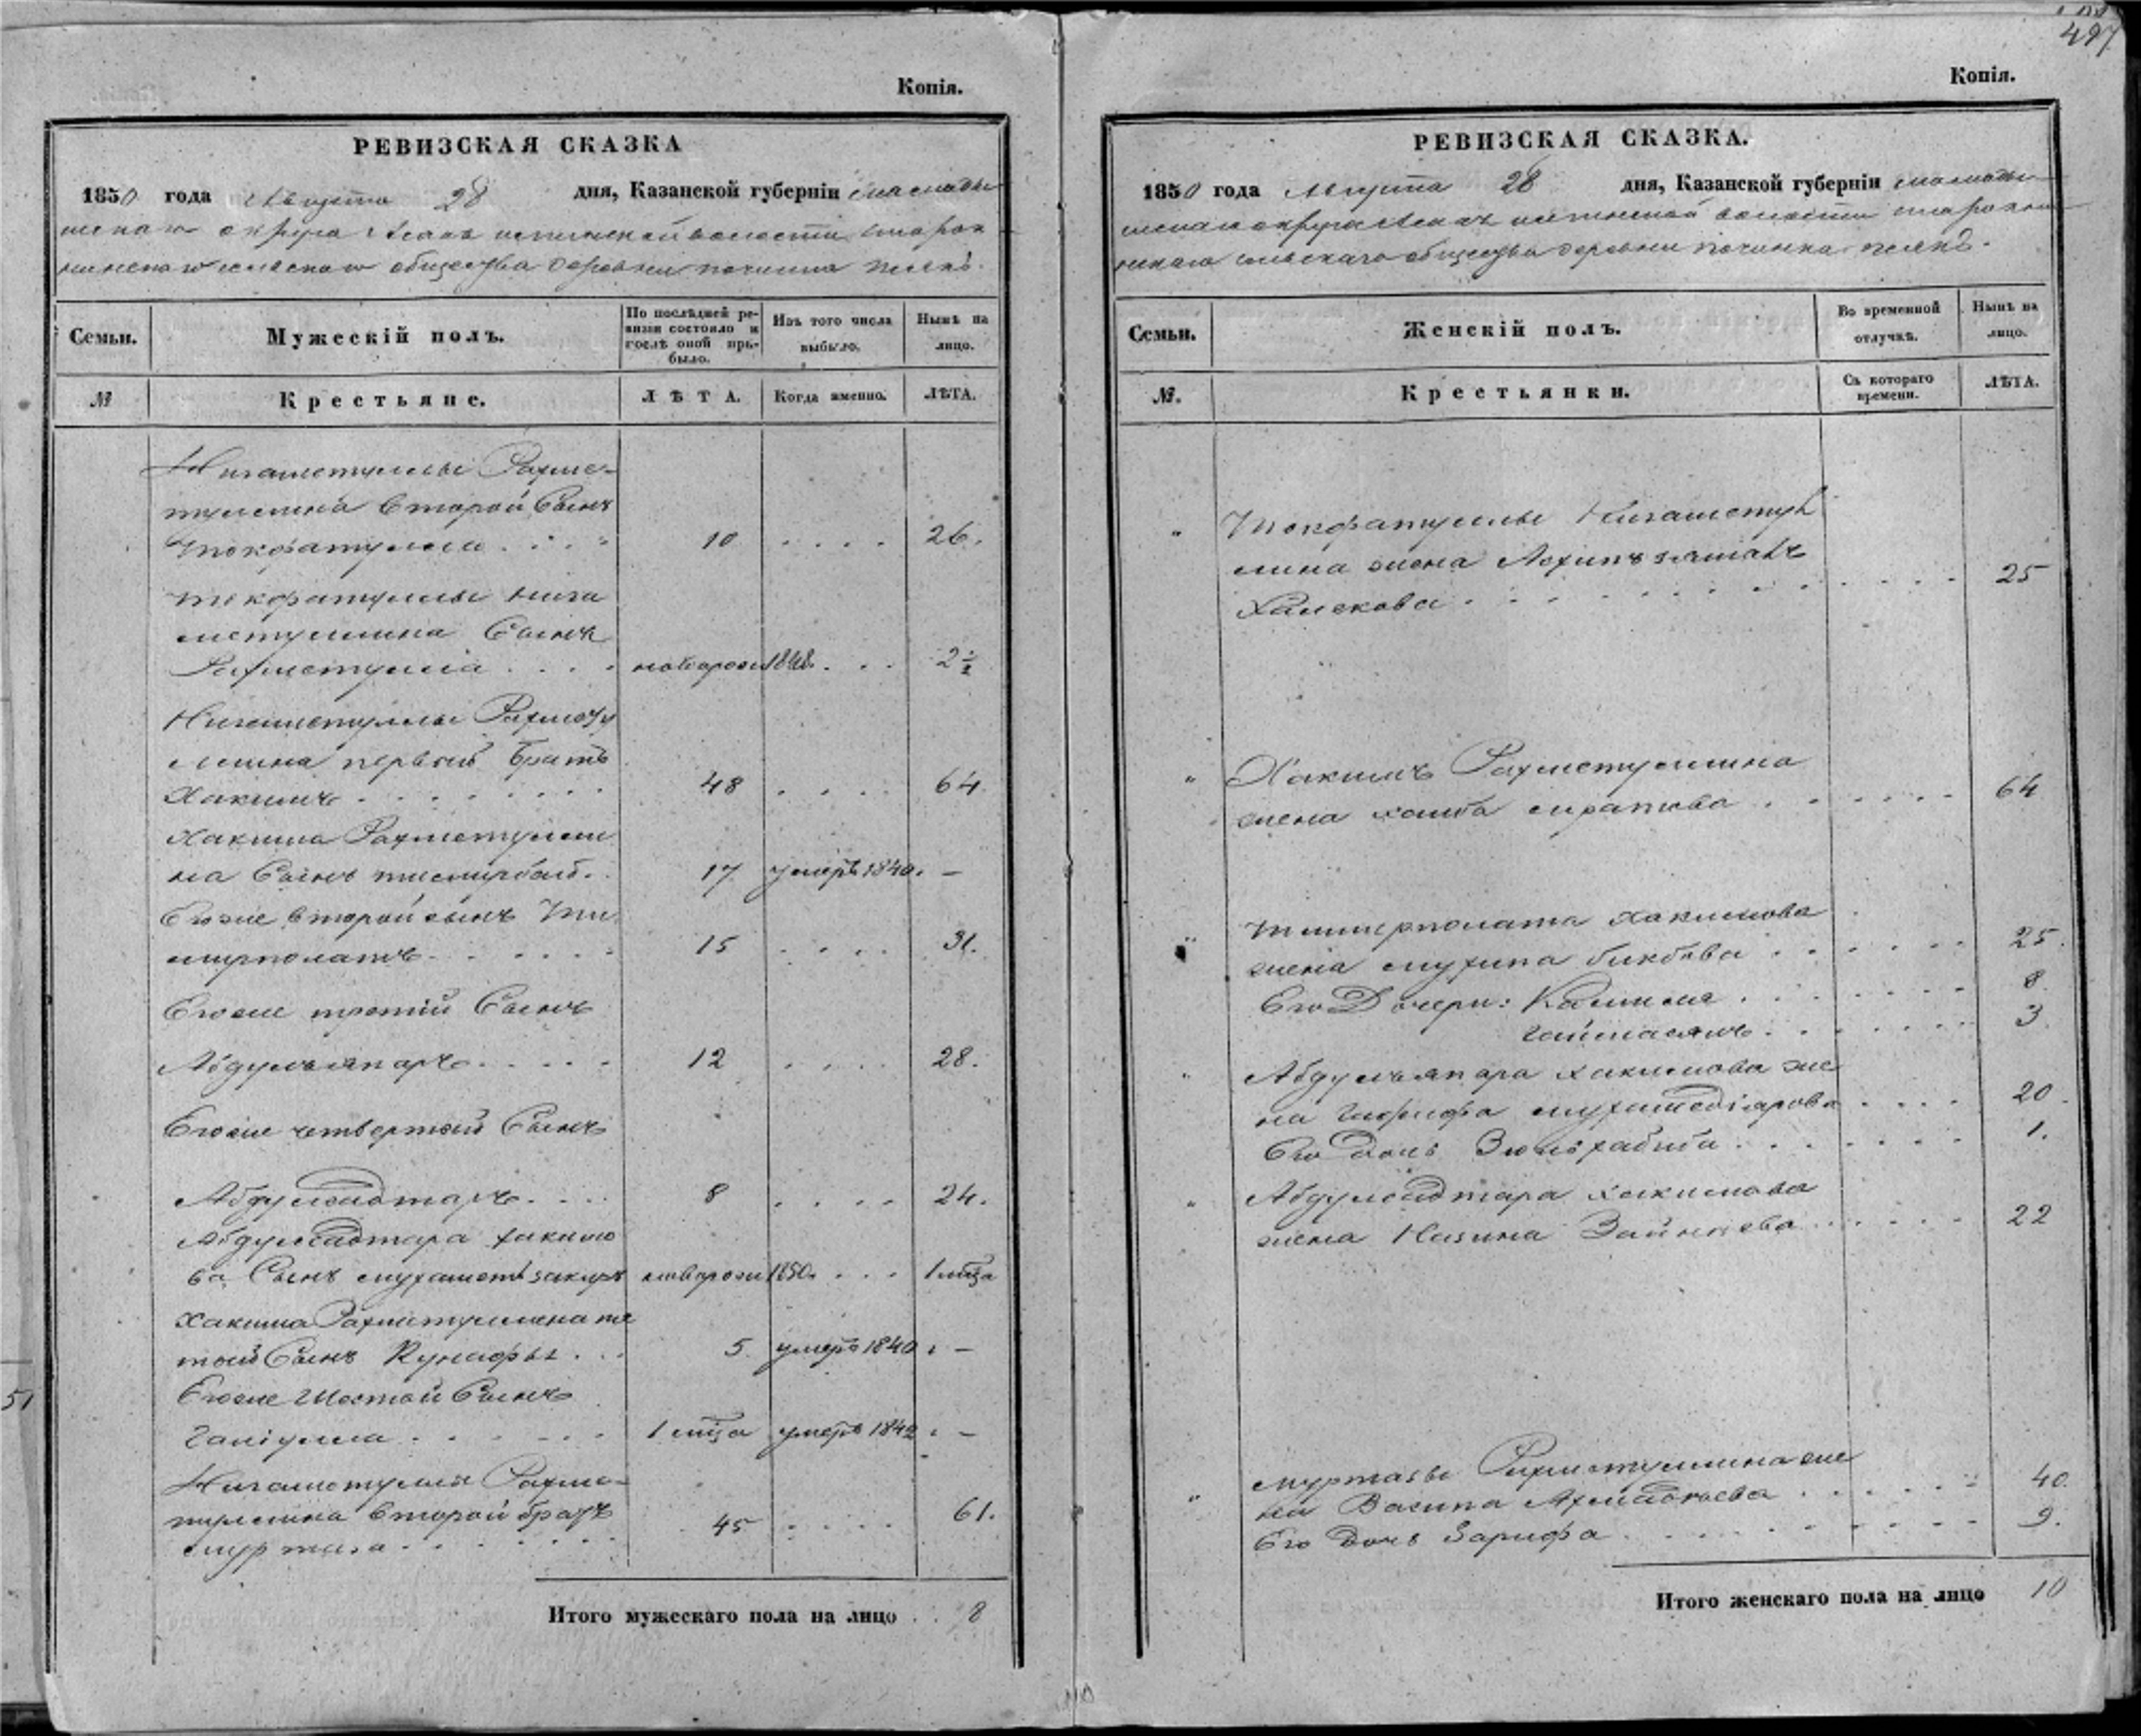 497
Копія.
РЕВИЗСКАЯ СКАЗКА
1850 года Августа 28 дня, Казанской губерніи мамады
шскаго округа волости
сельскаго общества деревни починка
Семьи.
Мужескій полъ.
По послѣдней ре-
визіи состояло и
послѣ оной при-
было.
Изъ того числа
выбыло.
Нынѣ на
лицо.
№
Крестьяне.
ЛѢТА.
Когда именно.
ЛѢТА.
Нигаметуллы Рахме-
туллина второй Сынъ
Токфатулла 10 26.
Токфатуллы Нига
метуллина Сынъ
Рахметулла новорож 1848. 2½
Нигаметуллы Рахмету
ллина первый братъ
Хакимъ 48 64.
Хакима Рахметулли
на Сынъ тимирбай. 17 умеръ 1840. —
Егоже второй сынъ Ти
мирполатъ 15 31.
Егоже третій Сынъ
Абдулъяпаръ 12 28.
Егоже четвертый Сынъ
Абдулсадтаръ 8 24.
Абдулсадтара хакимо
ва Сынъ мухаметзакиръ новорож 1850. 1 мца
Хакима Рахметуллина пя
тый Сынъ Кунафы 5 умеръ 1840. —
Егоже Шестой Сынъ
Галіулла 1 мца умеръ 1842. —
Нигаметуллы Рахме-
туллина второй братъ
муртаза 45 61.
Итого мужескаго пола на лицо 8
51
Копія.
РЕВИЗСКАЯ СКАЗКА.
1850 года Августа 28 дня, Казанской губерніи мамады
шскаго округа волости
сельскаго общества деревни починка
Семьи.
Женскій полъ.
Во временной
отлучкѣ.
Нынѣ на
лицо.
№.
Крестьянки.
Съ котораго
времени.
ЛѢТА.
" Токфатуллы Нигаметул
лина жена
Халекова 25
" Хакимъ Рахметуллина
жена 64
" Тимирполата Хакимова
жена 25.
Его Дочери: Камиля 8.
3.
" Абдулъяпара хакимова же
на мухамедіярова 20.
Его дочь 1.
" Абдулсадтара хакимова
жена 22
муртазы Рахметуллина же
" на 40.
Его дочь Зарифа 9.
Итого женскаго пола на лицо 10